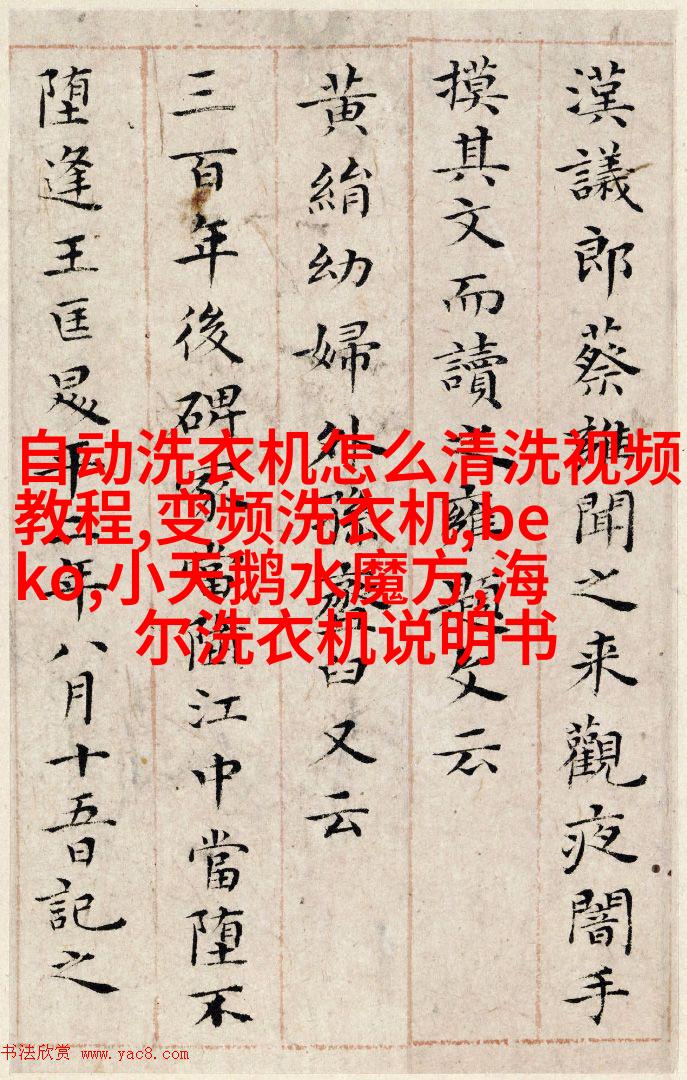 漢議郎蔡雝聞之来觀夜闇手
摸其文而讀之雍題文云
黄絹幼婦外孫韲臼又云
三百年後碑冢當墮江中當墮不
墮逢王匡昇平二年八月十五日記之
自动洗衣机怎么清洗视频
教程,变频洗衣机,be
ko,小天鹅水魔方,海
尔洗衣机说明书
书法欣赏 www.yac8.com